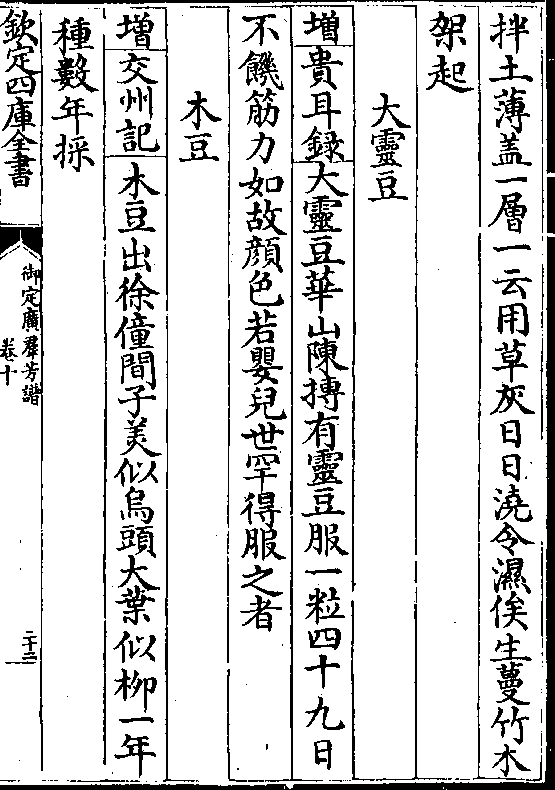 拌土薄盖一層一云用草灰日日澆令濕俟生蔓竹木
架起
大靈豆
增貴耳録大靈豆華山陳摶有靈豆服一粒四十九日
不饑筋力如故顔色若嬰兒世罕得服之者
木豆
增交州記木豆出徐僮間子美似烏頭大葉似柳一年
種數年採
欽定四庫全書
御定廣羣芳譜
卷十
二十二